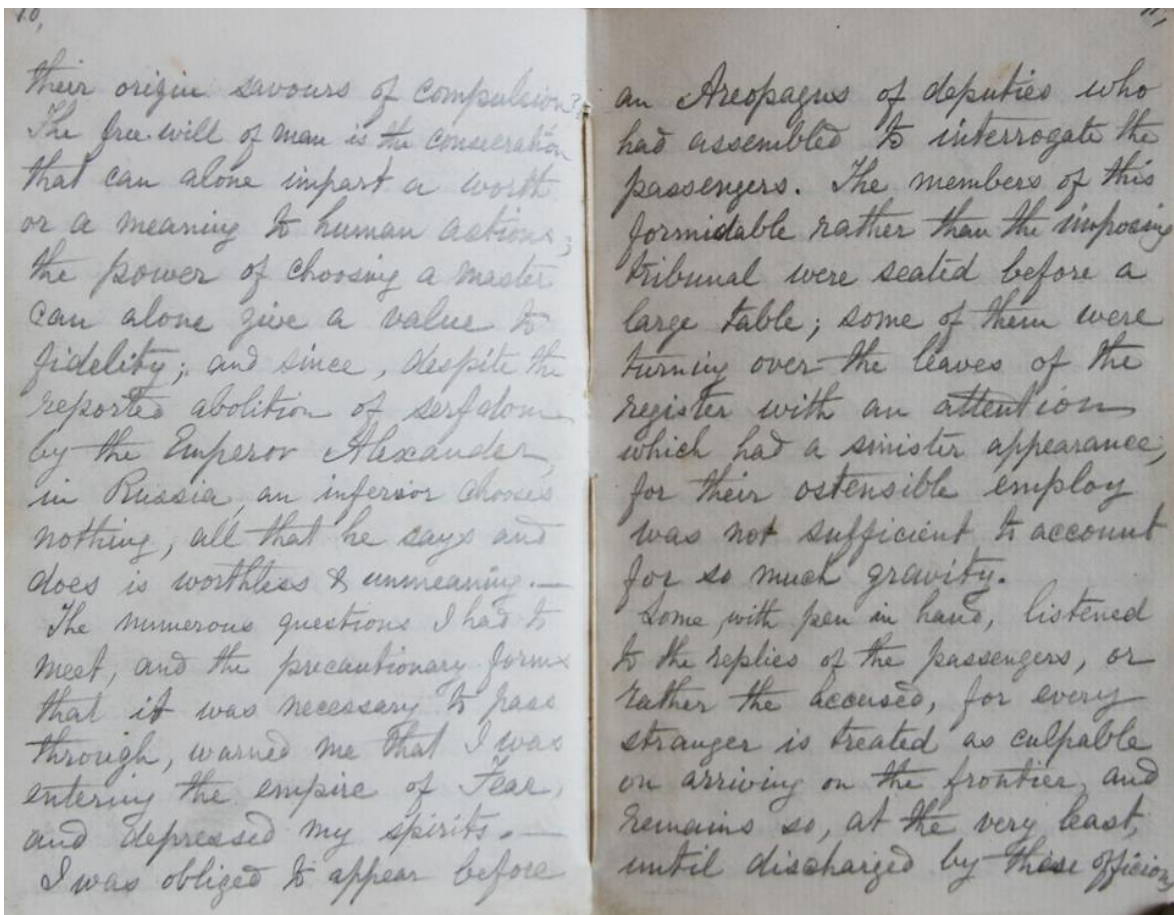 10,
their origin savours of compulsion?
The free will of man is the consecration
that can alone impart a worth
or a meaning to human actions;
the power of choosing a master
can alone give a value to
fidelity; and since, despite the
reported abolition of serfdom
by the Emperor Alexander,
in Russia, an inferior chooses
nothing, all that he says and
does is worthless & unmeaning.—
The numerous questions I had to
meet, and the precautionary forms
that it was necessary to pass
through, warned me that I was
entering the empire of Fear,
and depressed my spirits.—
I was obliged to appear before
11,
an Areopagus of deputies who
had assembled to interrogate the
passengers. The members of this
formidable rather than the imposing
tribunal were seated before a
large table; some of them were
turning over the leaves of the
register with an attention
which had a sinister appearance,
for their ostensible employ
was not sufficient to account
for so much gravity.
Some, with pen in hand, listened
to the replies of the passengers, or
rather the accused, for every
stranger is treated as culpable
on arriving on the frontier, and
remains so, at the very least,
until discharged by these